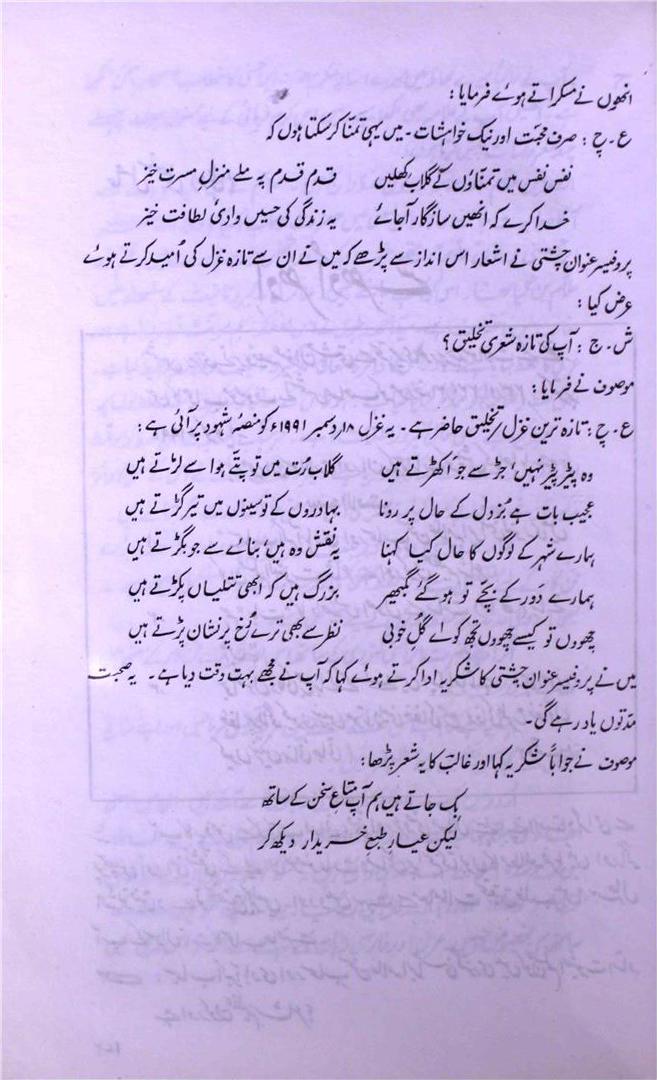 انھوں نے مسکراتے ہوئے فرمایا :
ع ۔ چ : صرف محبت اور نیک خواہشات ۔ میں یہی تمنا کر سکتا ہوں کہ
نفس نفس میں تمناؤں کے گلاب کھلیں قدم قدم پہ ملے منزلِ مسرت خیز
خدا کرے کہ انھیں سازگار آ جائے یہ زندگی کی حسیں وادیٔ لطافت خیز
پروفیسر عنوان چشتی نے اشعار اس انداز سے پڑھے کہ میں نے ان سے تازہ غزل کی اُمید کرتے ہوئے
عرض کیا :
ش ۔ ج : آپ کی تازہ شعری تخلیق ؟
موصوف نے فرمایا :
ع ۔ چ : تازہ ترین غزل / تخلیق حاضر ہے ۔ یہ غزل ۱۸ دسمبر ۱۹۹۱ء کو منصۂ شہود پر آئی ہے :
وہ پیڑ پیڑ نہیں، جڑ سے جو اکھڑتے ہیں گلاب رُت میں تو پتّے ہوا سے لڑتے ہیں
عجیب بات ہے بُزدل کے حال پر رونا بہادروں کے تو سینوں میں تیر گڑتے ہیں
ہمارے شہر کے لوگوں کا حال کیا کہنا یہ نقش وہ ہیں، بنائے سے جو بگڑتے ہیں
ہمارے دَور کے بچّے تو ہو گئے گمبھیر بزرگ ہیں کہ ابھی تتلیاں پکڑتے ہیں
چھووں تو کیسے چھووں تجھ کو اے گلِ خوبی نظر سے بھی ترے رُخ پر نشان پڑتے ہیں
میں نے پروفیسر عنوان چشتی کا شکریہ ادا کرتے ہوئے کہا کہ آپ نے مجھے بہت وقت دیا ہے ۔ یہ صحبت
مدّتوں یاد رہے گی ۔
موصوف نے جواباً شکریہ کہا اور غالب کا یہ شعر پڑھا :
بک جاتے ہیں ہم آپ متاعِ سخن کے ساتھ
لیکن عیارِ طبعِ خریدار دیکھ کر